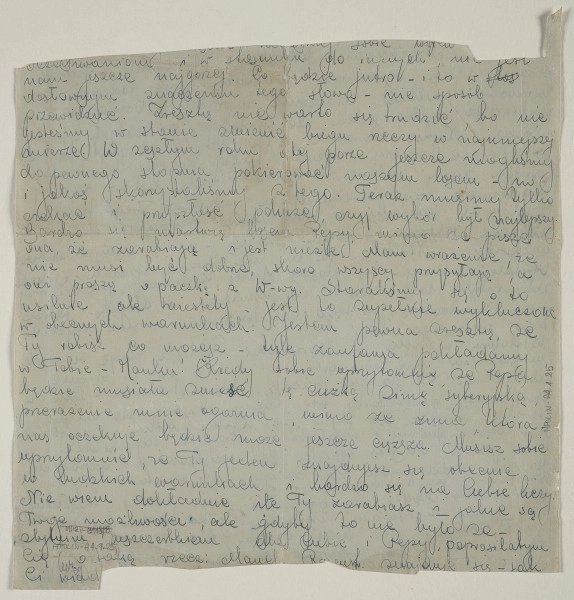 oczekiwaniami i w stosunku do innych nie jest
nam jeszcze najgorzej. Co będzie jutro - i to w
dosłownym znaczeniu tego słowa - nie sposób
przewidzieć. Zresztą nie warto się trudzić, bo nie
jesteśmy w stanie zmienić biegu rzeczy w najmniejszej
mierze. W zeszłym roku o tej porze jeszcze mogliśmy
do pewnego stopnia pokierować naszym losem - no
i jakoś skorzystaliśmy z tego. Teraz musimy tylko
czekać i przyszłość pokaże, czyj wybór był najlepszy.
Bardzo się martwię losem Repy, mimo że pisze
ona, że zarabiają i jest nieźle. Mam wrażenie, że
nie musi być dobrze, skoro wszyscy przysyłają, a
oni proszą o paczki z W-wy. Staraliśmy się o to
usilnie, ale niestety - jest to zupełnie wykluczone
w obecnych warunkach. Jestem pewna zresztą, że
Ty robisz co możesz - tyle zaufania pokładamy
w Tobie - Maniu. Kiedy sobie uprzytomnię, że Repa
będzie musiała znieść tę ciężką zimę syberyjską,
przerażenie mnie ogarnia mimo że zima, która
nas oczekuje będzie może jeszcze cięższa. Musisz sobie
uprzytomnić, że Ty jeden znajdujesz się obecnie
w ludzkich warunkach i bardzo się na Ciebie liczy.
Nie wiem dokładnie ile Ty zarabiasz i jakie są
Twoje możliwości, ale gdyby to nie było ze
zbytnim uszczerbkiem dla Ciebie i Repy, poprosiłabym
Cię o taką rzecz: znajduje się - jak
Ci wiad
RPLIN-AA.1.25